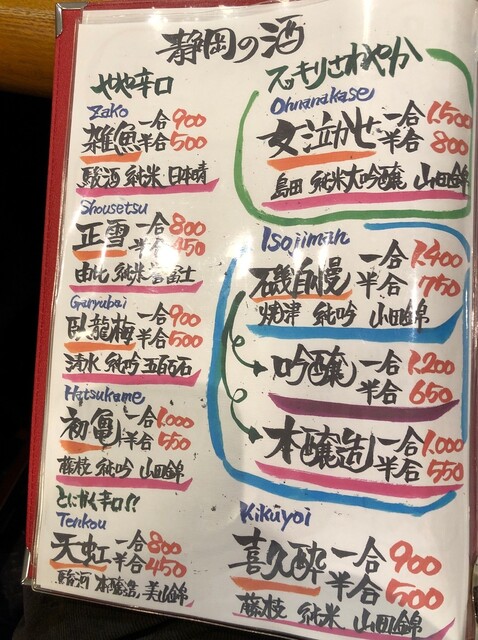 静岡の酒
やや辛口
Zako
雑魚 一合 900
半合 500
駿酒 純米 日本晴
Shousetsu
正雪 一合 800
半合 450
由比 純米 誉富士
Garyubai
臥龍梅 一合 900
半合 500
清水 純吟 五百万石
Hatsukame
初亀 一合 1.000
半合 550
藤枝 純吟 山田錦
とにかく辛口!?
Tenkou
天虹 一合 800
半合 450
駿河 本醸造 美山錦
スッキリさわやか
Ohnanakase
女泣かせ 一合 1.500
半合 800
島田 純米大吟醸 山田錦
Isojiman
磯自慢 一合 1.400
半合 750
焼津 純吟 山田錦
吟醸 一合 1.200
半合 650
本醸造 一合 1.000
半合 550
Kikuyoi
喜久酔 一合 900
半合 500
藤枝 純米 山田錦